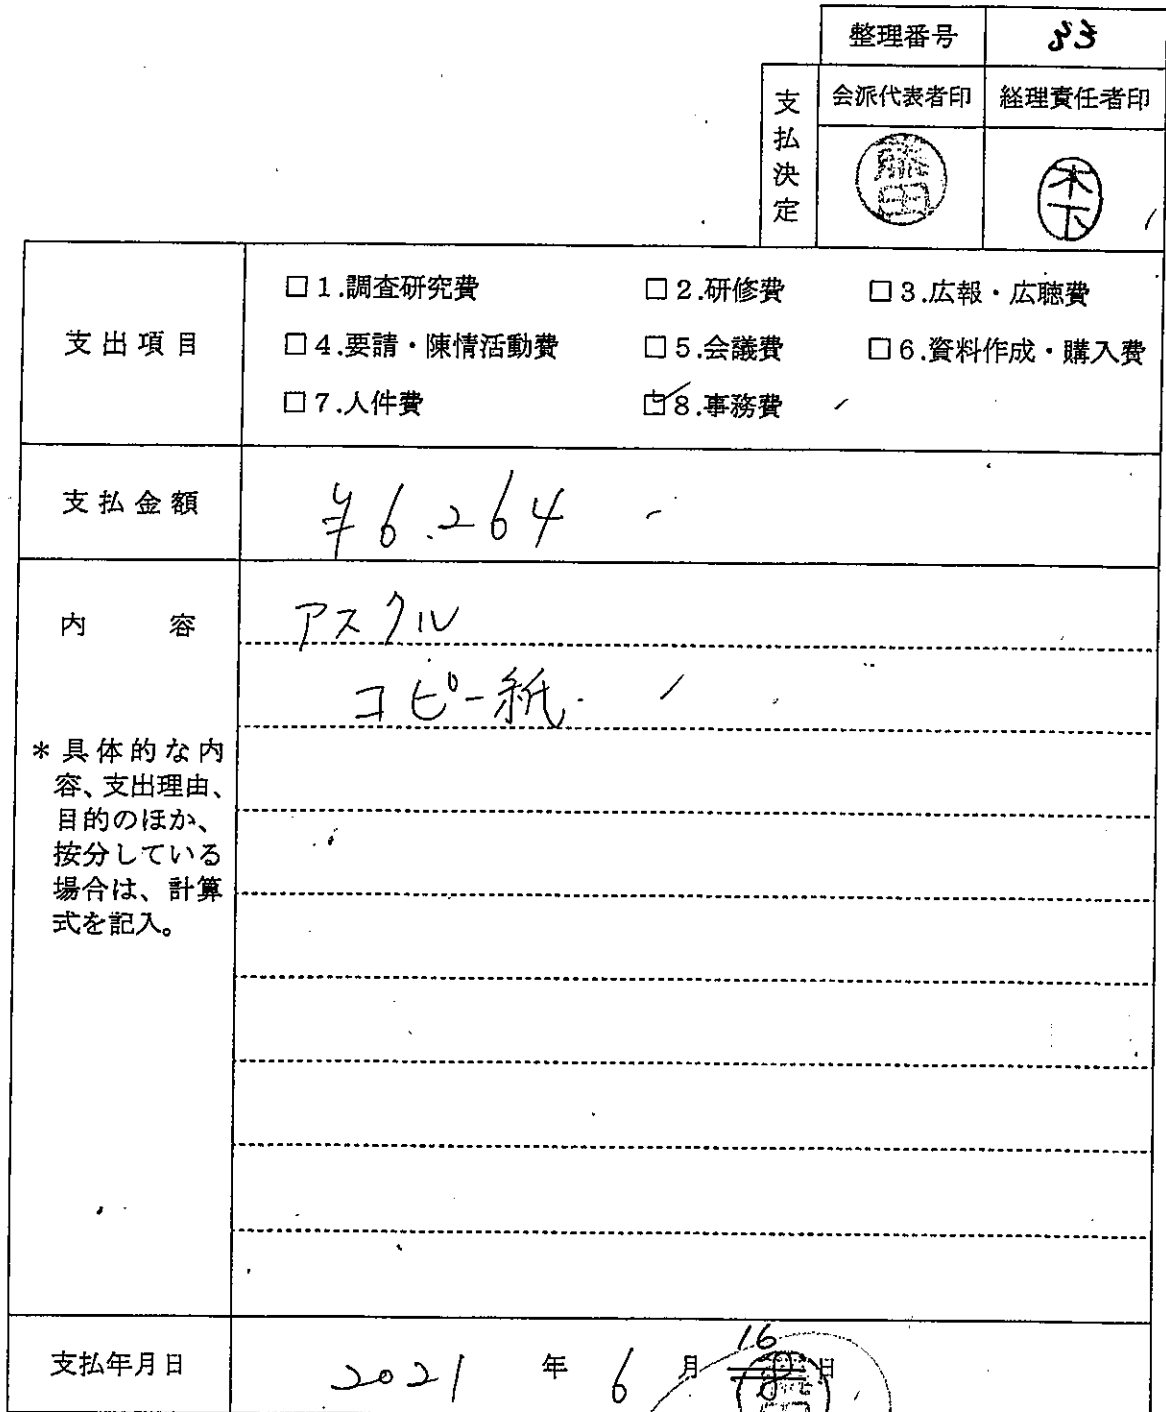 整理番号 33
支払決定 会派代表者印 経理責任者印
藤田 木下
支出項目
□1.調査研究費 □2.研修費 □3.広報・広聴費
□4.要請・陳情活動費 □5.会議費 □6.資料作成・購入費
□7.人件費 ☑8.事務費
支払金額 ¥6.264
内 容 アスクル
コピー紙
*具体的な内
容、支出理由、
目的のほか、
按分している
場合は、計算
式を記入。
16
支払年月日 2021 年 6 月 日